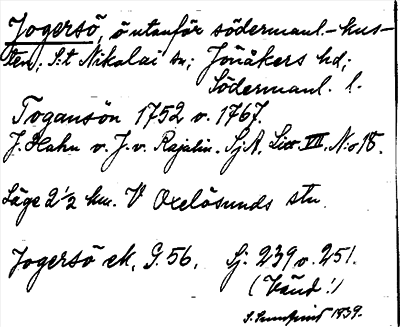 Jogersö, ö utanför södermanl.-kus-
ten; S:t Nikolai sn; Jönåkers hd;
Södermanl. l.
Togansön 1752 o. 1767.
J. Hahn o. J. v. Rajalin. Sj.A. Litt. VII. No 18.
Läge 2 1/2 km. V Oxelösunds stn.
Jogersö ek. G. 56. Sj. 239 o. 251.
(Vänd!)
1839.